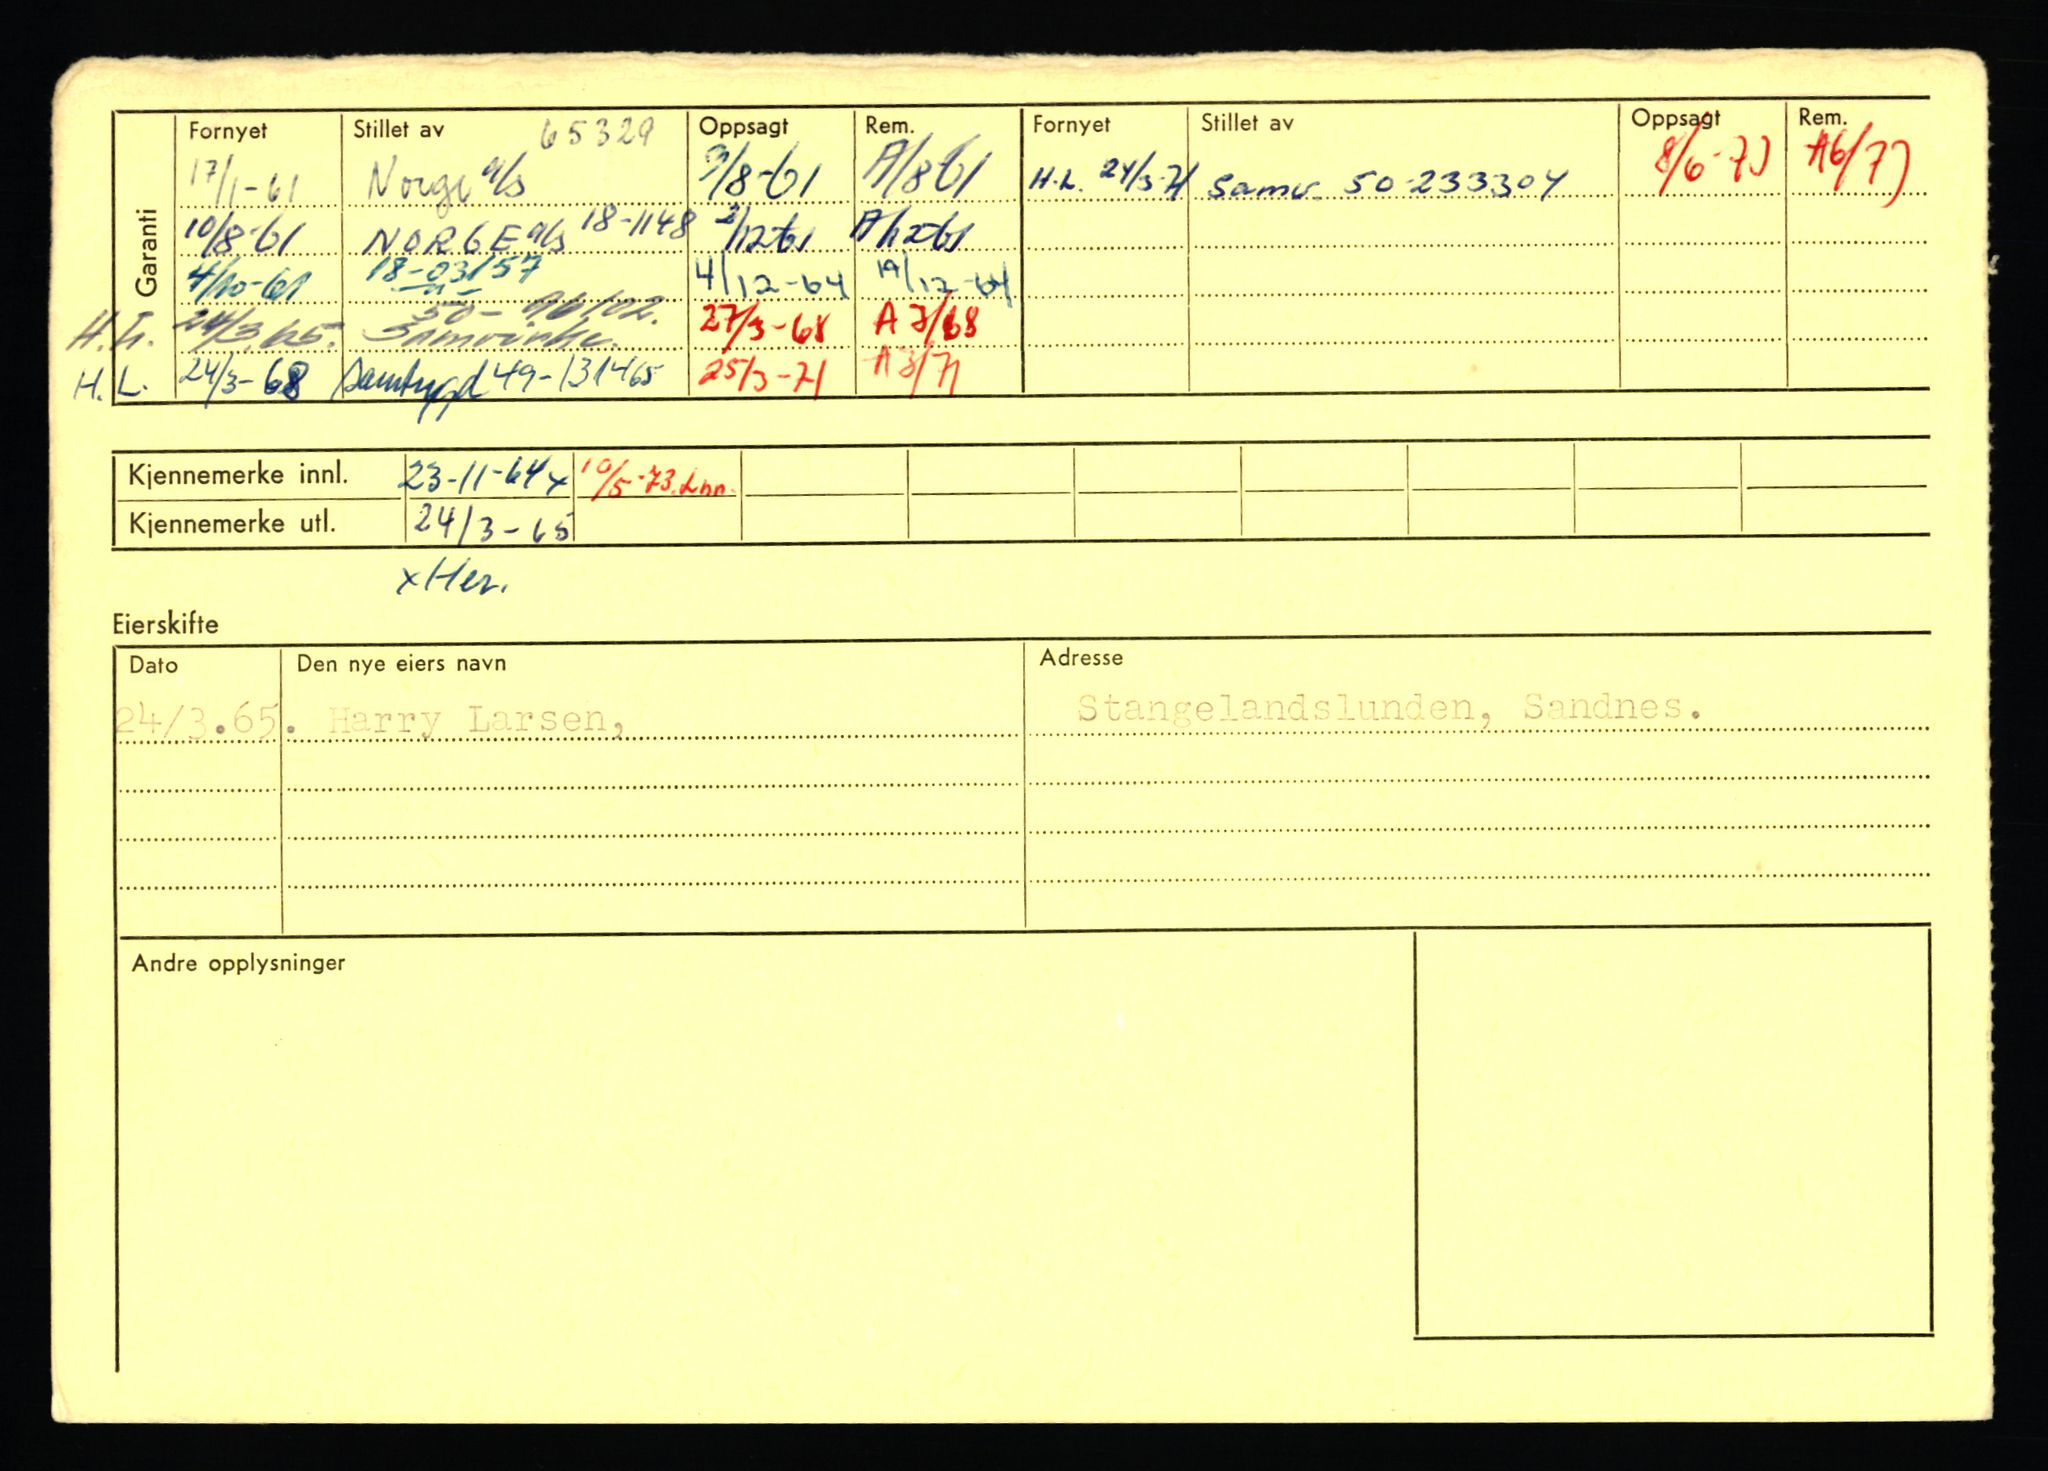 Garanti
Fornyet Stillet av 65329 Oppsagt Rem. Fornyet Stillet av Oppsagt Rem.
17/1-61 Norge a/s 9/8-61 A/8 61 H.L. 24/3-71 Samv. 50-233304 8/6-73 A6/73
10/8-61 NORGE a/s 18-1148 2/12-61 A/12 61
4/10-61 18-03157 4/12-64 19/12-64
H.L. 24/3.65. 50- Samvirke. 27/3-68 A 3/68
H.L. 24/3-68 Samtrygd 49-131465 25/3-71 A3/71
Kjennemerke innl. 23-11-64 x 10/5-73. Lnn.
Kjennemerke utl. 24/3-65
x Her.
Eierskifte
Dato Den nye eiers navn Adresse
24/3.65. Harry Larsen, Stangelandslunden, Sandnes.
Andre opplysninger